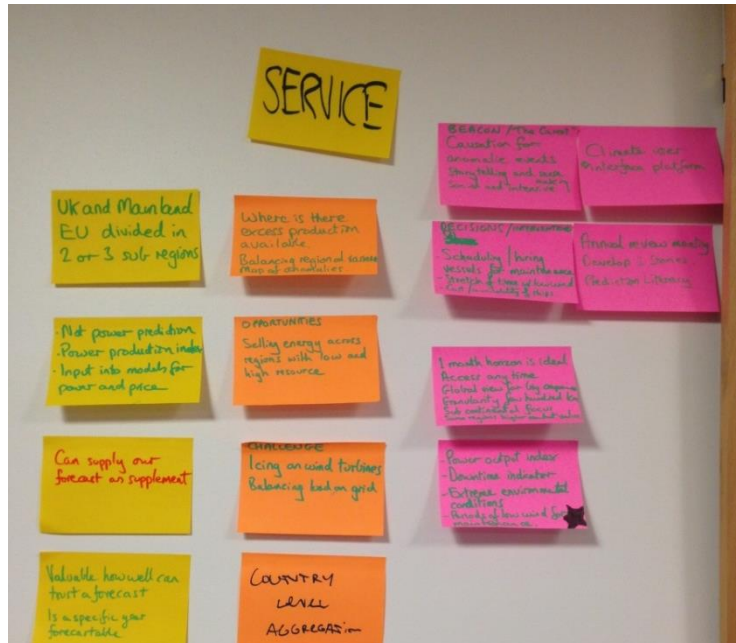 SERVICE
UK and Mainland
EU divided in
2 or 3 sub regions
- Not power prediction
- Power production index
- Input into models for
power and price
Can supply our
forecast as supplement
Valuable how well can
trust a forecast
Is a specific year
forecastable
Where is there
excess production
available.
Balancing regional
Map of anomalies
OPPORTUNITIES
Selling energy across
regions with low and
high resource
CHALLENGE
Icing on wind turbines
Balancing load on grid
COUNTRY
LEVEL
AGGREGATION
BEACON / "The Carrot"
Causation for
anomalic events
Storytelling and sense
making
Social and
Climate user
interface platform
DECISIONS /
- Scheduling / hiring
vessels for maintenance
- Stretch of time w low wind
Annual review meeting
Develop stories
Prediction Literacy
1 month horizon is ideal
Access any time
Global view for big
Granularity few hundred km
Sub continental focus
Some regions higher
- Power output index
- Downtime indicator
- Extreme environmental
conditions
- Periods of low wind for
maintenance.